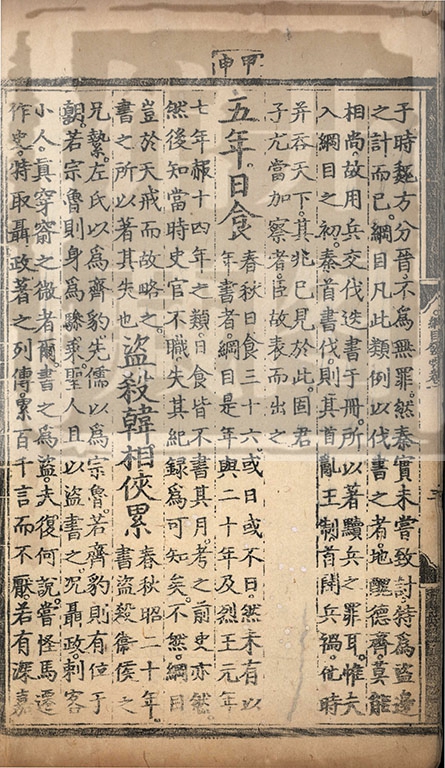 甲申
于時魏方分晉不爲無罪然秦實未嘗致討特爲盜邊
之計而已綱目凡此類例以伐書之者地醜德齊莫能
相尚故用兵交伐迭書于冊所以著黷兵之罪耳惟夫
入綱目之初秦首書伐則其首亂王制首開兵禍他時
并吞天下其兆已見於此固君
子尤當加察者臣故表而出之
五年日食
春秋日食三十六或日或不日然未有以
年書者綱目是年與二十年及烈王元年
七年赧十四年之類日食皆不書其月考之前史亦然
然後知當時史官不職失其紀錄爲可知矣不然綱目
豈於天戒而故略之
書之所以著其失也
盜殺韓相俠累
春秋昭二十年
書盜殺衞侯之
兄縶左氏以爲齊豹先儒以爲宗魯若齊豹則有位于
朝若宗魯則身爲驂乘聖人且以盜書之况聶政刺客
小人真穿窬之微者爾書之爲盜夫復何說嘗怪馬遷
作史特取聶政著之列傳累百千言而不厭若有深嘉